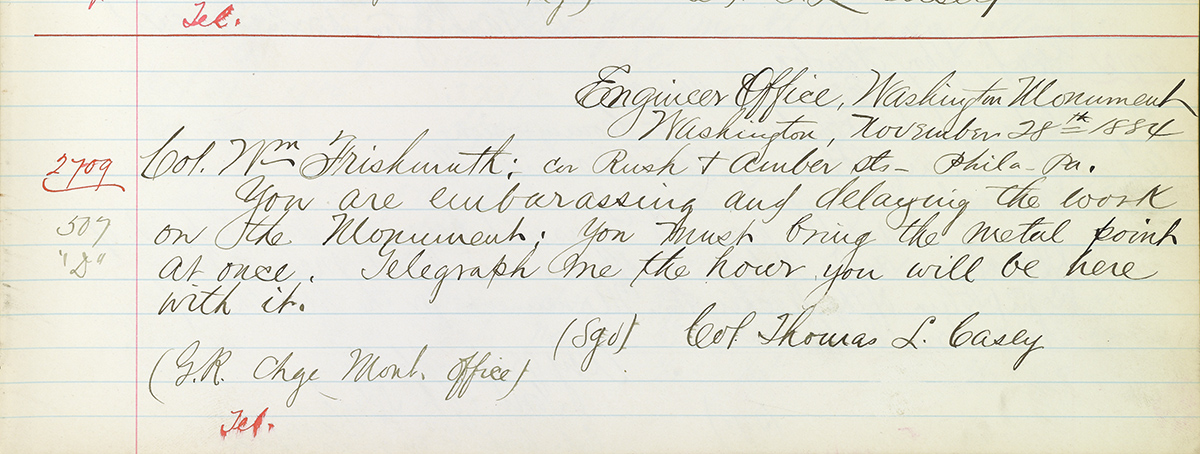 Tel.
Engineer Office, Washington Monument
Washington, November 28th 1884
2709 Col. Wm Frishmuth; cor Rush & Amber sts - Phila - Pa.
You are embarassing and delaying the work
507 on the Monument; You must bring the metal point
"D" at once. Telegraph me the hour you will be here
with it.
(Sgd) Col. Thomas L. Casey
(G.R. Chge Mont. Office)
Tel.